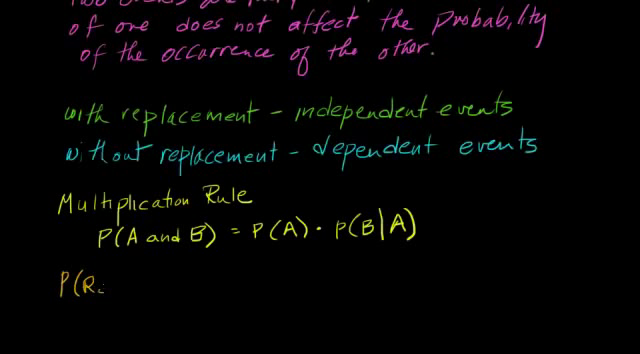 of one does not affect the probability
of the occurrence of the other.
with replacement - independent events
without replacement - dependent events
Multiplication Rule
P(A and B) = P(A) · P(B|A)
P(R